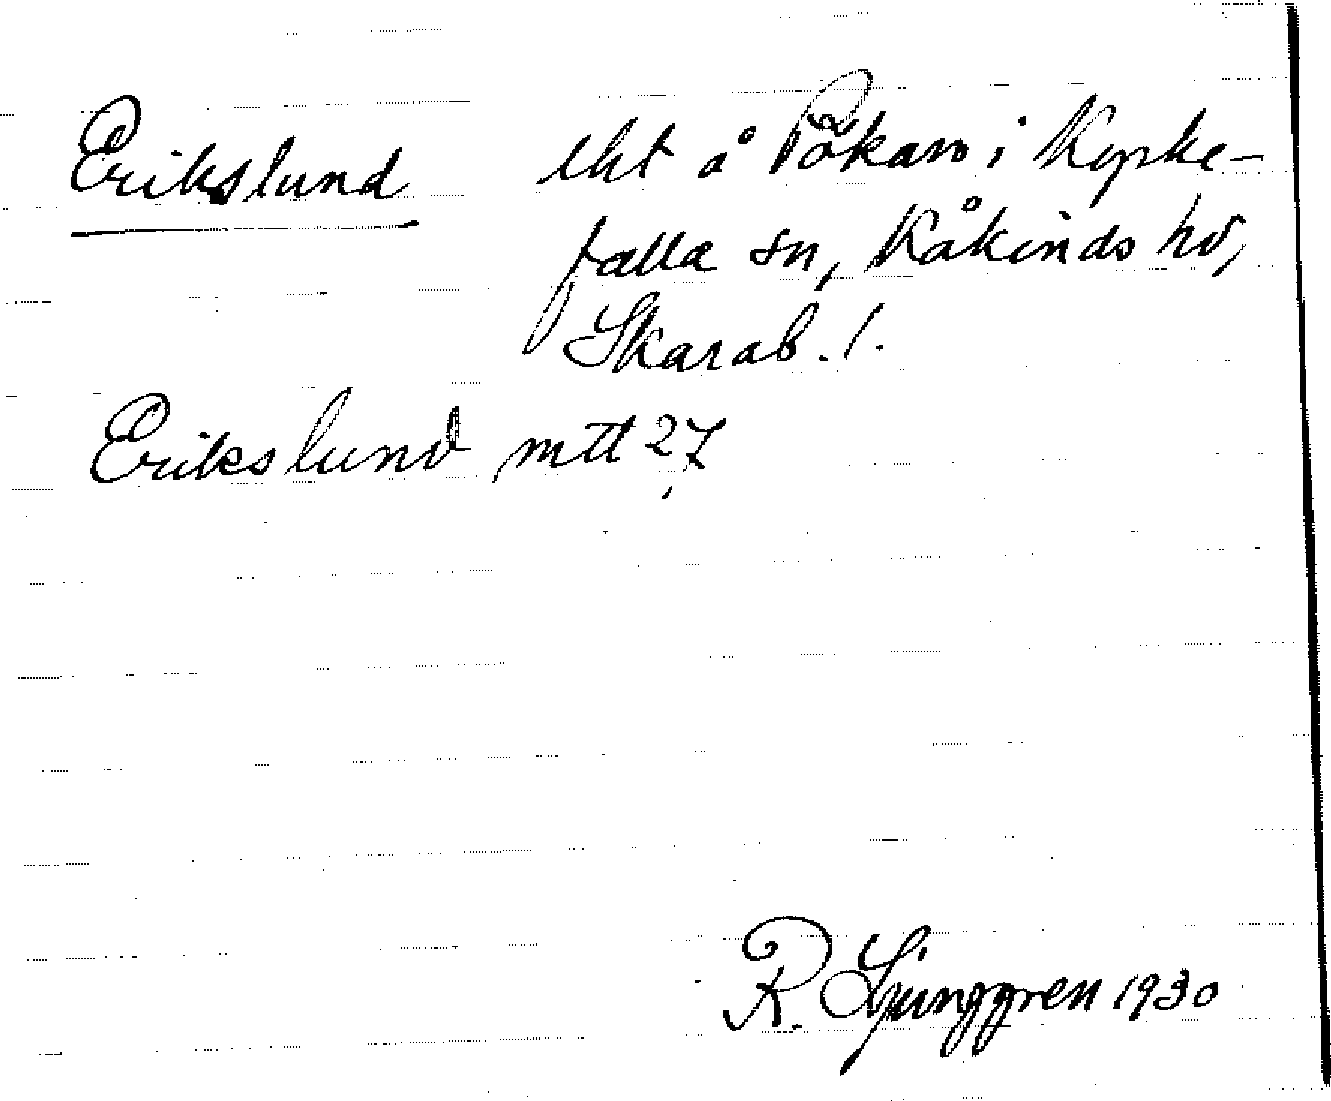 Erikslund lht å Påkarn i Kyrke-
falla sn, Kåkinds hd,
Skarab. l.
Erikslund mtl 27
R. Ljunggren 1930